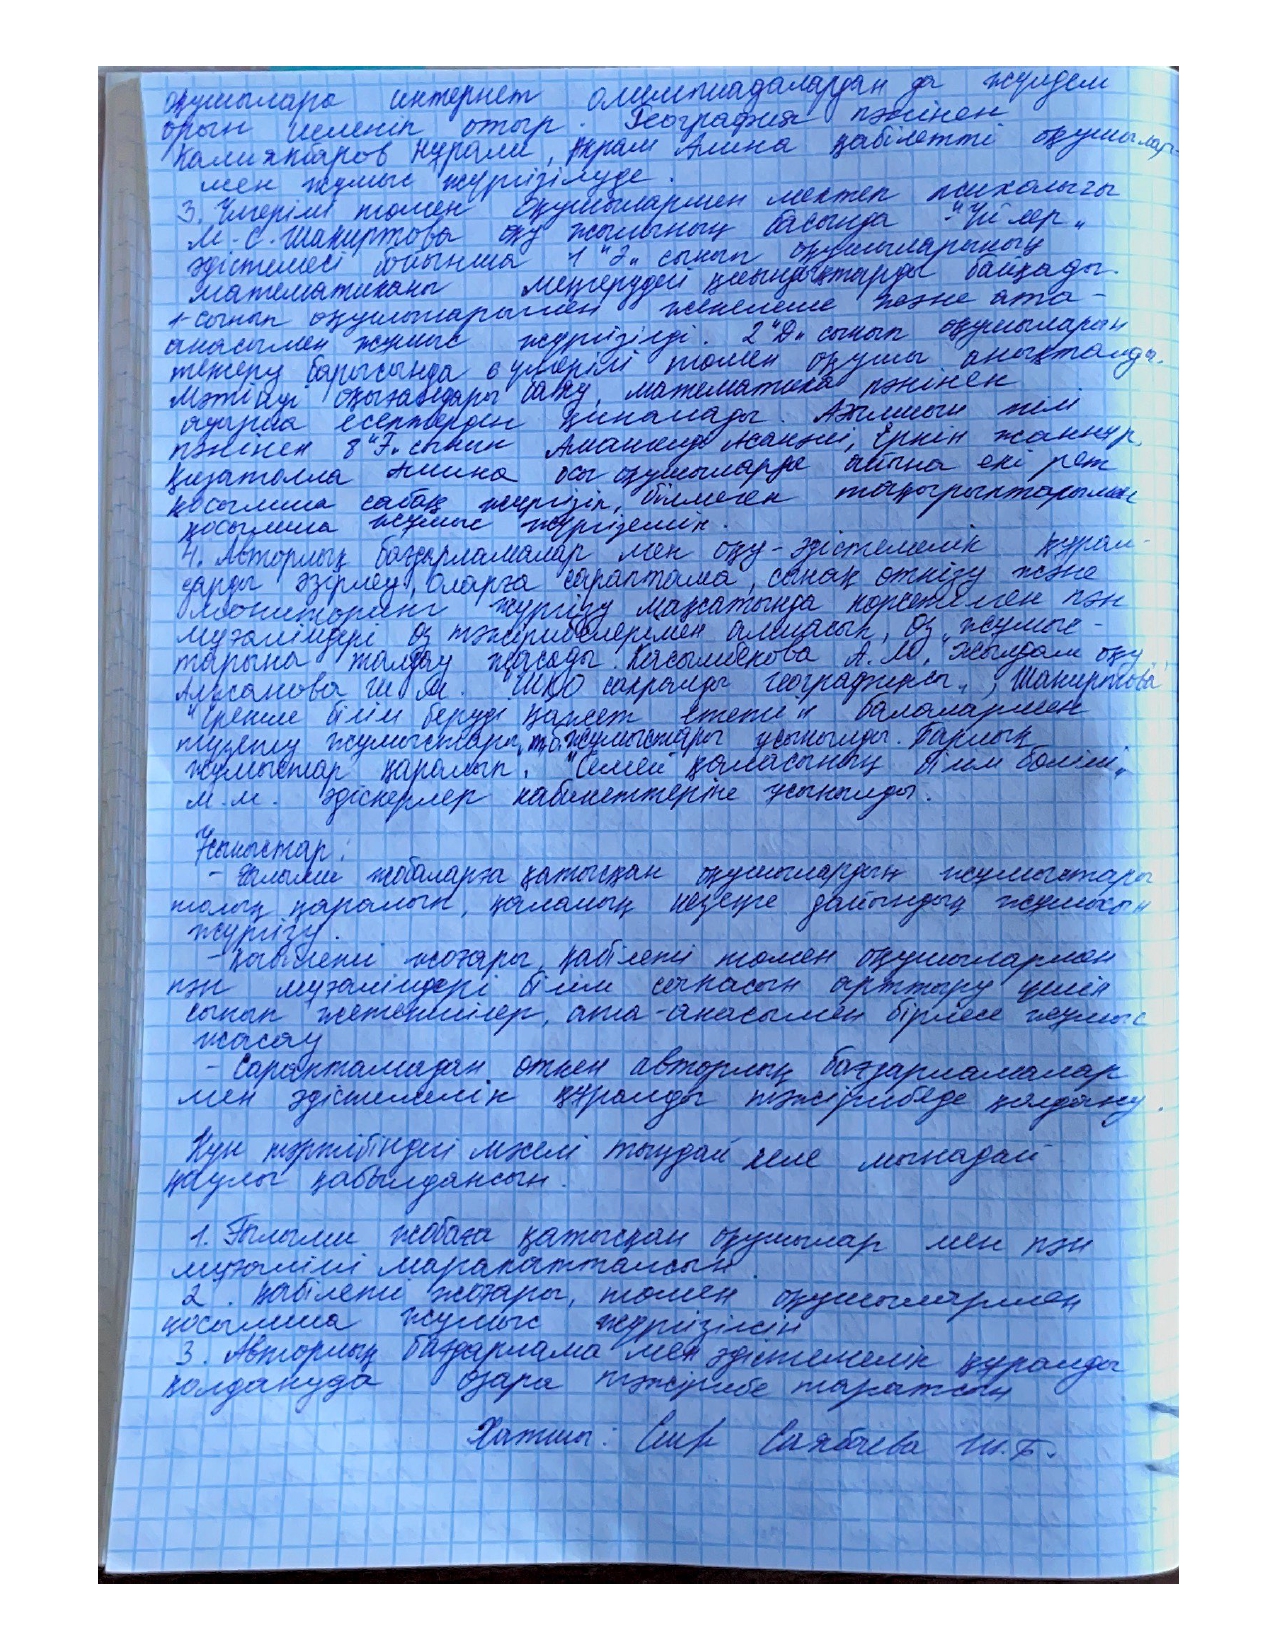 оқушылара интернет олимпиадалардан да жүлделі
орын иеленіп отыр. География пәнінен
Калиякбаров Нұрали, Икрам Алина қабілетті оқушылар-
мен жұмыс жүргізілуде.
3. Үлгерімі төмен оқушылармен мектеп психологы
М.С. Шакиртова оқу жылының басында "Үйлер"
әдістемесі бойынша 1 "Ә" сынып оқушыларының
математиканы меңгерудегі қиындықтарды байқады.
1-сынып оқушыларымен жекелеме және ата-
анасымен жұмыс жүргізілді. 2 "D" сынып оқушыларын
тексеру барысында 6 үлгерімі төмен оқушы анықталды.
Мәтінді оқығандары баяу, математика пәнінен
ауызша есептерден қиналады. Ағылшын тілі
пәнінен 8 "Ғ" сынып Аманкелді Жаннși, Еркін Жаннұр
Қизатолла Амина осы оқушыларға айына екі рет
қосымша сабақ жүргізіп, білмеген тақырыптарымен
қосымша жұмыс жүргіземін.
4. Авторлық бағдарламалар мен оқу-әдістемелік құрал-
дарды әзірлеу, оларға сараптама, сынақ өткізу және
мониторинг жүргізу мақсатында көрсетілген пән
мұғалімдері өз тәжірибелерімен алмасып, өз жұмыс-
тарына талдау жасады. Касымбекова А.М. "Жылдам оқу"
Альжанова Ш.М. "ШҚО сакралды географиясы", Шакиртова
"Ерекше білім беруді қажет ететін балалармен
түзету жұмыстары" жұмыстары ұсынылды. Барлық
жұмыстар қаралып, "Семей қаласының білім бөлімі"
м.м. әдіскерлер кабинеттеріне ұсынылды.
Ұсыныстар:
- Ғылыми жобаларға қатысқан оқушылардың жұмыстары
толық қаралып, қалалық кезеңге дайындық жұмысын
жүргізу.
- Қабілеті жоғары, қабілеті төмен оқушылармен
пән мұғалімдері білім сапасын арттыру үшін
сынып жетекшілер, ата-анасымен бірлесе жұмыс
жасау
- Сараптамадан өткен авторлық бағдарламалар
мен әдістемелік құралды тәжірибеде қолдану.
Күн тәртібіндегі мәселі тыңдай келе мынадай
қаулы қабылдансын.
1. Ғылыми жобаға қатысқан оқушылар мен пән
мұғалімі марапатталсын.
2. Қабілеті жоғары, төмен оқушылармен
қосымша жұмыс жүргізілсін
3. Авторлық бағдарлама мен әдістемелік құралды
қолдануда өзара тәжірибе таратсын
Хатшы: Саябаева Ш.Б.